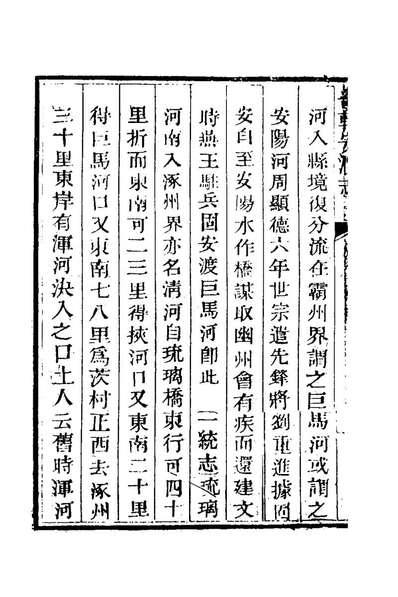 河入縣境復分流在霸州界謂之巨馬河或謂之
安陽河周顯德六年世宗遣先鋒將劉重進據固
安自至安陽水作橋謀取幽州會有疾而還建文
時燕王駐兵固安渡巨馬河卽此 一統志琉璃
河南入涿州界亦名淸河自琉璃橋東行可四十
里折而東南可二三里得挾河口又東南二十里
得巨馬河口又東南七八里爲茨村正西去涿州
三十里東岸有渾河決入之口土人云舊時渾河